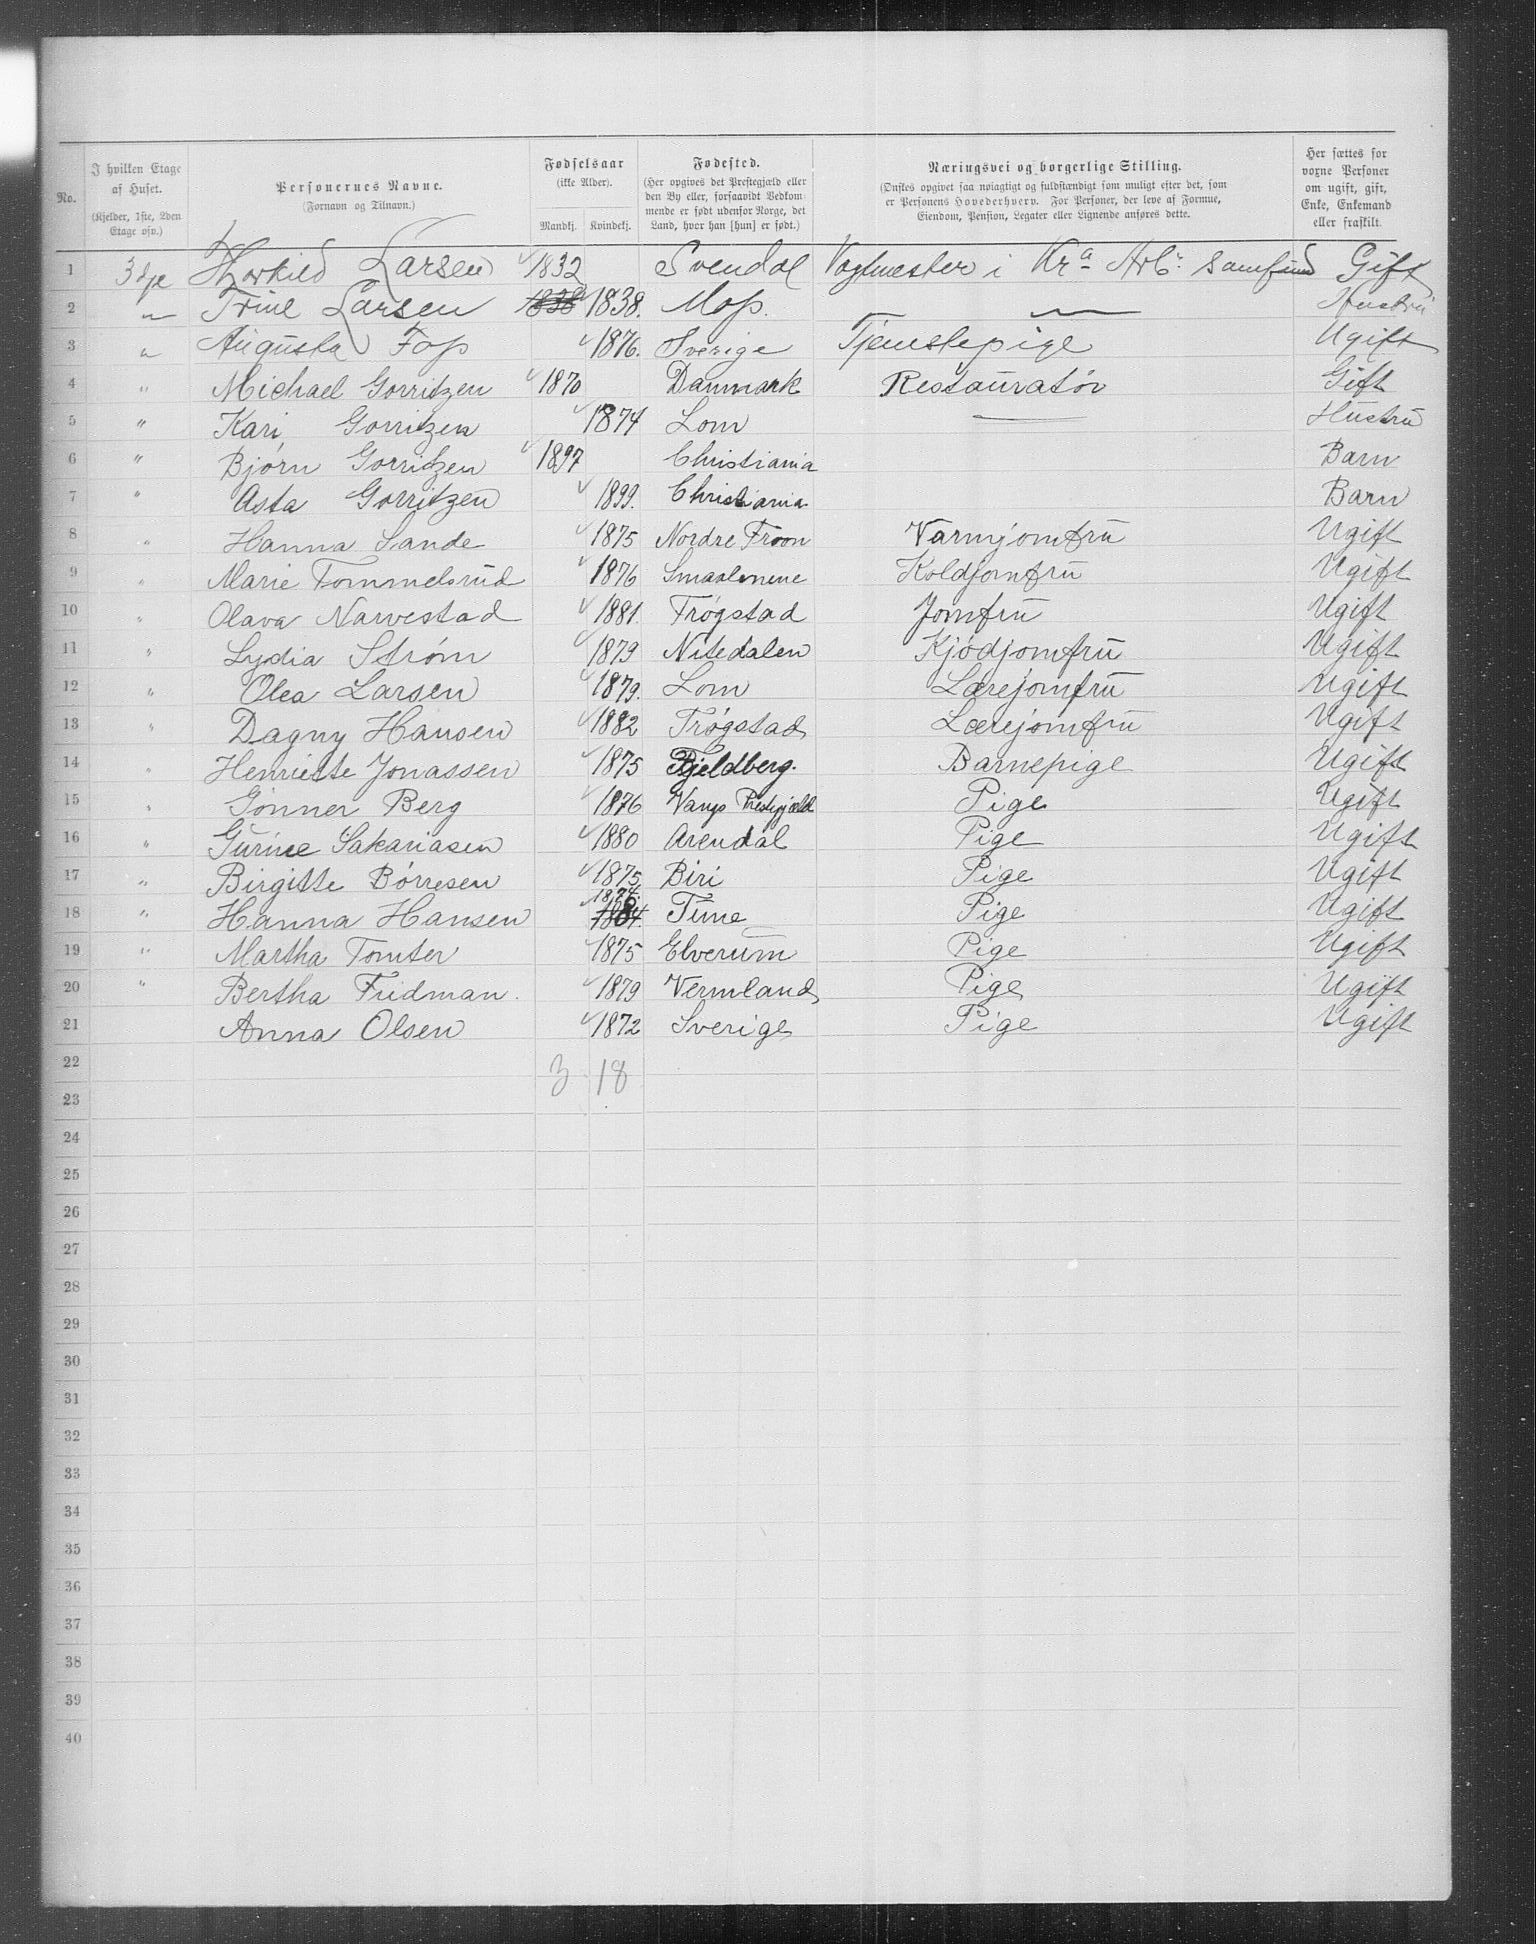 No.
I hvilken Etage af Huset.
(Kjelder, 1ste, 2den Etage osv.)
Personernes Navne.
(Fornavn og Tilnavn.)
Fødselsaar
(ikke Alder).
Mandkj. Kvindekj.
Fødested.
(Her opgives det Prestegjæld eller den By eller, forsaavidt Vedkommende er født udenfor Norge, det Land, hvor han [hun] er født.)
Næringsvei og borgerlige Stilling.
(Ønskes opgivet saa nøiagtigt og fuldstændigt som muligt efter det, som er Personens Hovederhverv. For Personer, der leve af Formue, Eiendom, Pension, Legater eller Lignende anføres dette.
Her sættes for voxne Personer om ugift, gift, Enke, Enkemand eller fraskilt.
1 3dje Thorkild Larsen 1832 Svendal Vagtmester i Kra Arb: Samfund Gift
2 " Trine Larsen 1838 1838. Moss. — Hustru
3 " Augusta Foss 1876. Sverige Tjenstepige Ugift
4 " Michael Gorritzen 1870 Danmark Restauratør Gift
5 " Kari Gorritzen 1874 Lom — Hustru
6 " Bjørn Gorritzen 1897 Christiania Barn
7 " Asta Gorritzen 1899. Christiania Barn
8 " Hanna Sande 1875 Nordre Froon Varmjomfru Ugift
9 " Marie Tommelsrud 1876 Smaalenene Koldjomfru Ugift
10 " Olava Narvestad 1881. Trøgstad Jomfru Ugift
11 " Lydia Strøm 1879 Nitedalen Kjødjomfru Ugift
12 " Olea Larsen 1879. Lom Lærejomfru Ugift
13 " Dagny Hansen 1882 Trøgstad Lærejomfru Ugift
14 " Henriette Jonassen 1875 Fjeldberg. Barnepige Ugift
15 " Gønner Berg 1876 Vangs Prestegjæld Pige Ugift
16 " Gurine Sakariasen 1880 Arendal Pige Ugift
17 " Birgitte Børresen 1875 Biri Pige Ugift
18 " Hanna Hansen 1874 Tune Pige Ugift
19 " Martha Tomter 1875 Elverum Pige Ugift
20 " Bertha Fridman. 1879 Vermland Pige Ugift
21 Anna Olsen 1872 Sverige Pige Ugift
22 3 18
23
24
25
26
27
28
29
30
31
32
33
34
35
36
37
38
39
40